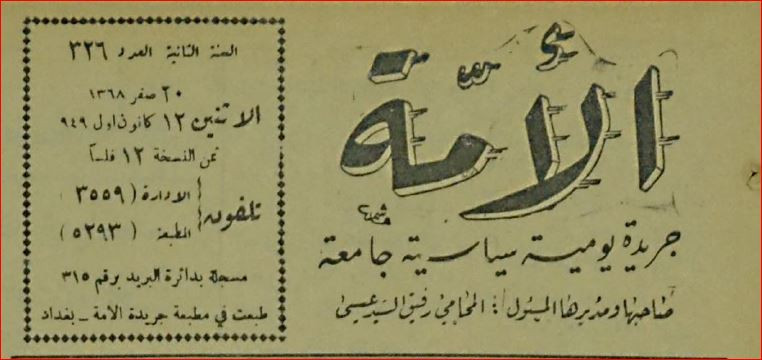 الأمة
جريدة يومية سياسية جامعة
صاحبها ومديرها المسئول : المحامي رفيق السيد عيسى
السنة الثانية العدد ٣٢٦
٢٠ صفر ١٣٦٨
الاثنين ١٢ كانون اول ٩٤٩
ثمن النسخة ١٢ فلساً
تلفون
الادارة ( ٣٥٥٩ )
المطبعة ( ٥٢٩٣ )
مسجلة بدائرة البريد برقم ٣١٥
طبعت في مطبعة جريدة الأمة ـ بغداد